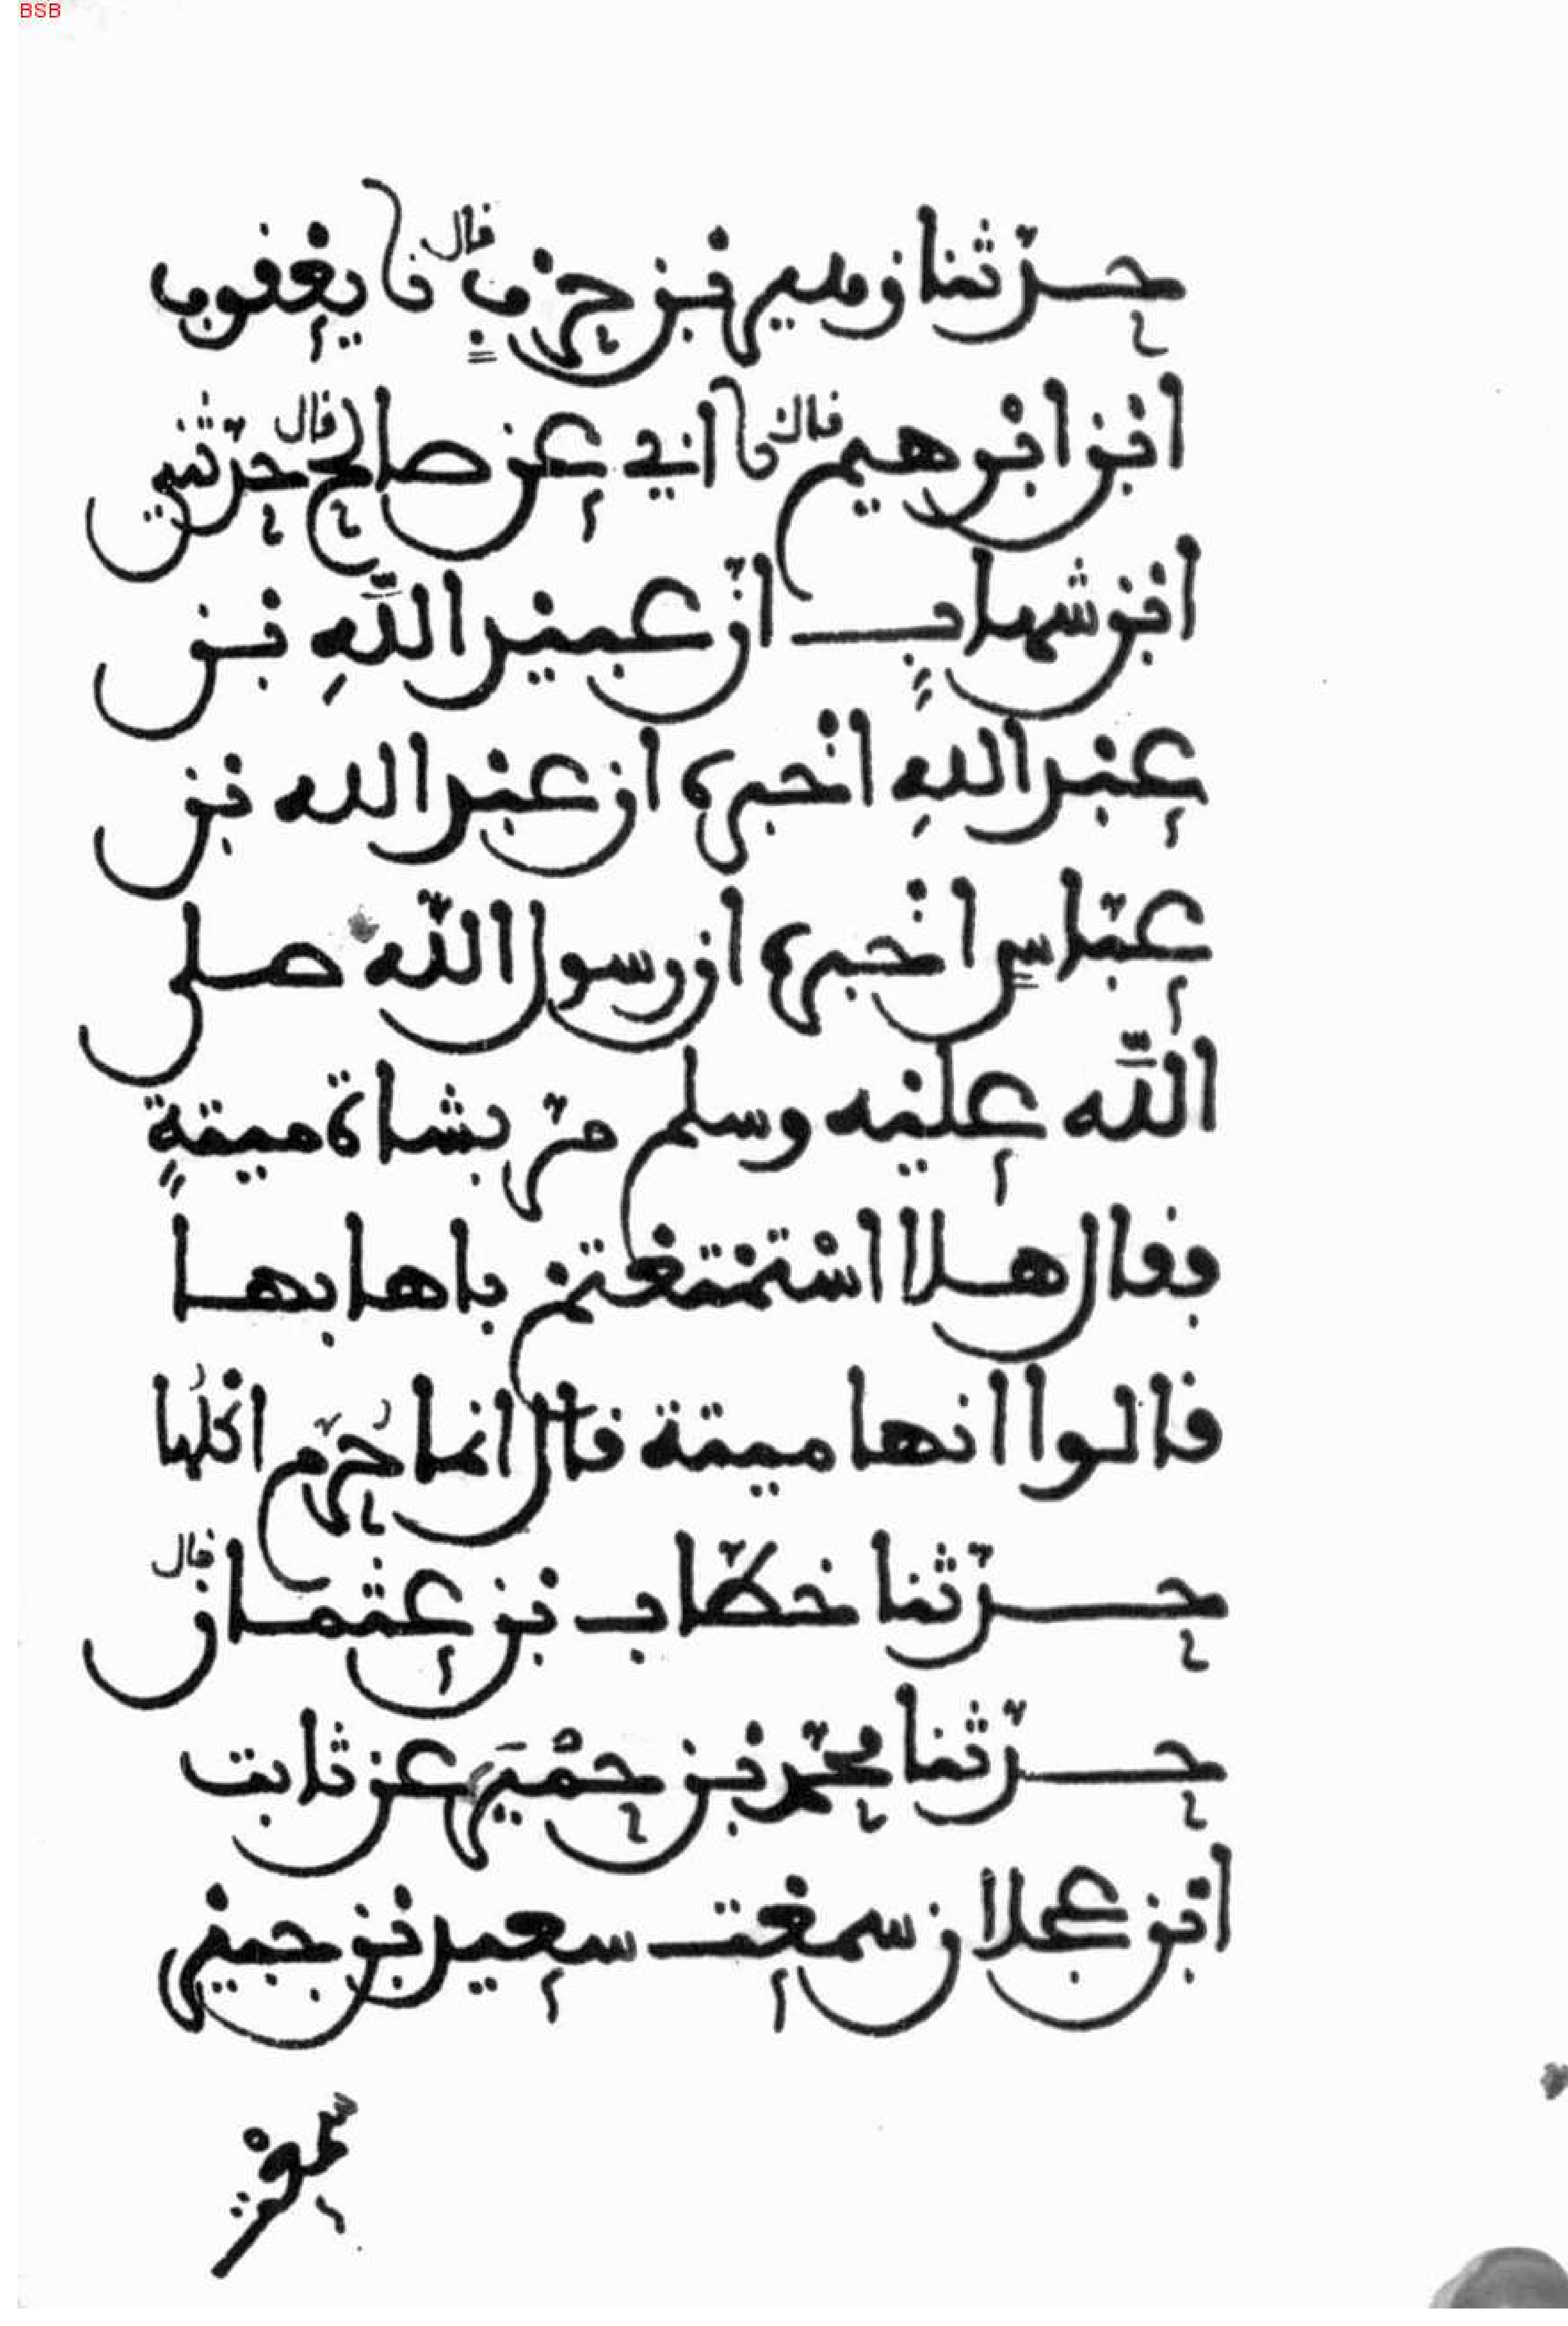 BSB
حدّثنا زهير بن حربٍ قال نا يعقوب
ابن ابرهيم قال نا ابي عن صالح قال حدّثني
ابن شهابٍ انّ عبيد اللّهِ بن
عبد اللهِ اخبره ان عبد الله بن
عبّاسٍ اخبره ان رسول اللّه صلى
اللّه عليه وسلم مرّ بشاة ميتةٍ
فقال هلا استمتعتم باهابها
قالوا انها ميتة قال انما حُرّم اكلُها
حدّثنا خطّاب بن عثمان قال
حدّثنا محمّد بن حمْيَر عن ثابت
ابن عجلان سمعت سعيد بن جبير